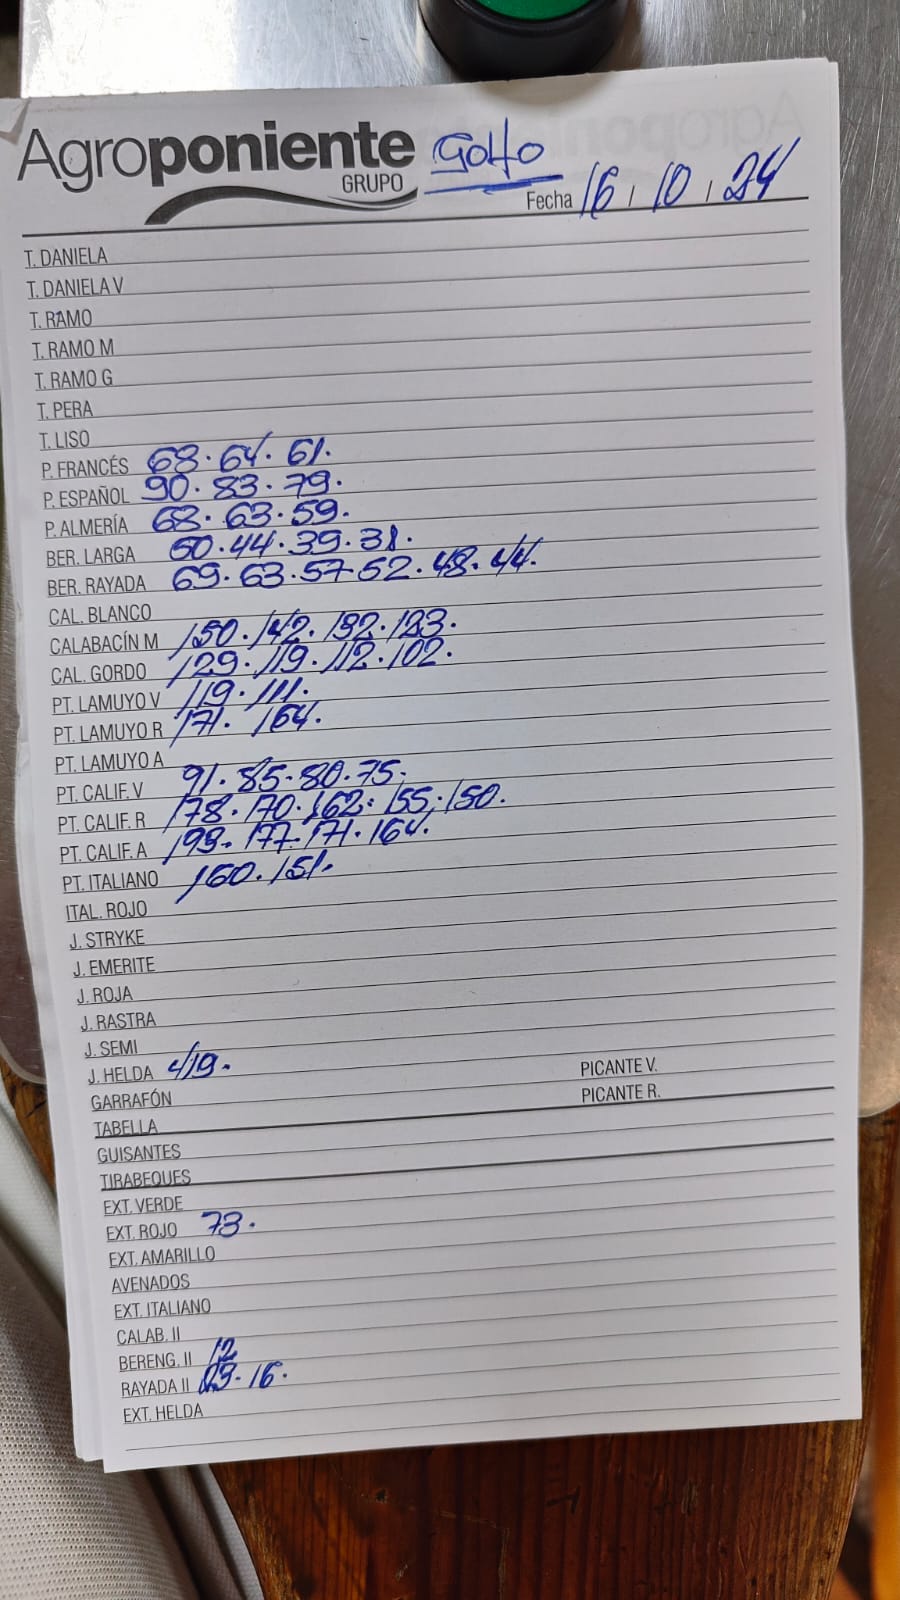 Agroponiente Golfo
GRUPO
Fecha 16 / 10 / 24
T. DANIELA
T. DANIELA V
T. RAMO
T. RAMO M
T. RAMO G
T. PERA
T. LISO
P. FRANCÉS 68. 64. 61.
P. ESPAÑOL 90. 83. 79.
P. ALMERÍA 68. 63. 59.
BER. LARGA 50. 44. 39. 31.
BER. RAYADA 69. 63. 57. 52. 48. 44.
CAL. BLANCO
CALABACÍN M 150. 142. 132. 123.
CAL. GORDO 129. 119. 112. 102.
PT. LAMUYO V 119. 111.
PT. LAMUYO R 171. 164.
PT. LAMUYO A
PT. CALIF. V 91. 85. 80. 75.
PT. CALIF. R 178. 170. 162. 155. 150.
PT. CALIF. A 193. 177. 171. 164.
PT. ITALIANO 160. 151.
ITAL. ROJO
J. STRYKE
J. EMERITE
J. ROJA
J. RASTRA
J. SEMI
J. HELDA 419.
GARRAFÓN PICANTE V.
TABELLA PICANTE R.
GUISANTES
TIRABEQUES
EXT. VERDE
EXT. ROJO 73.
EXT. AMARILLO
AVENADOS
EXT. ITALIANO
CALAB. II
BERENG. II 12
RAYADA II 16.
EXT. HELDA